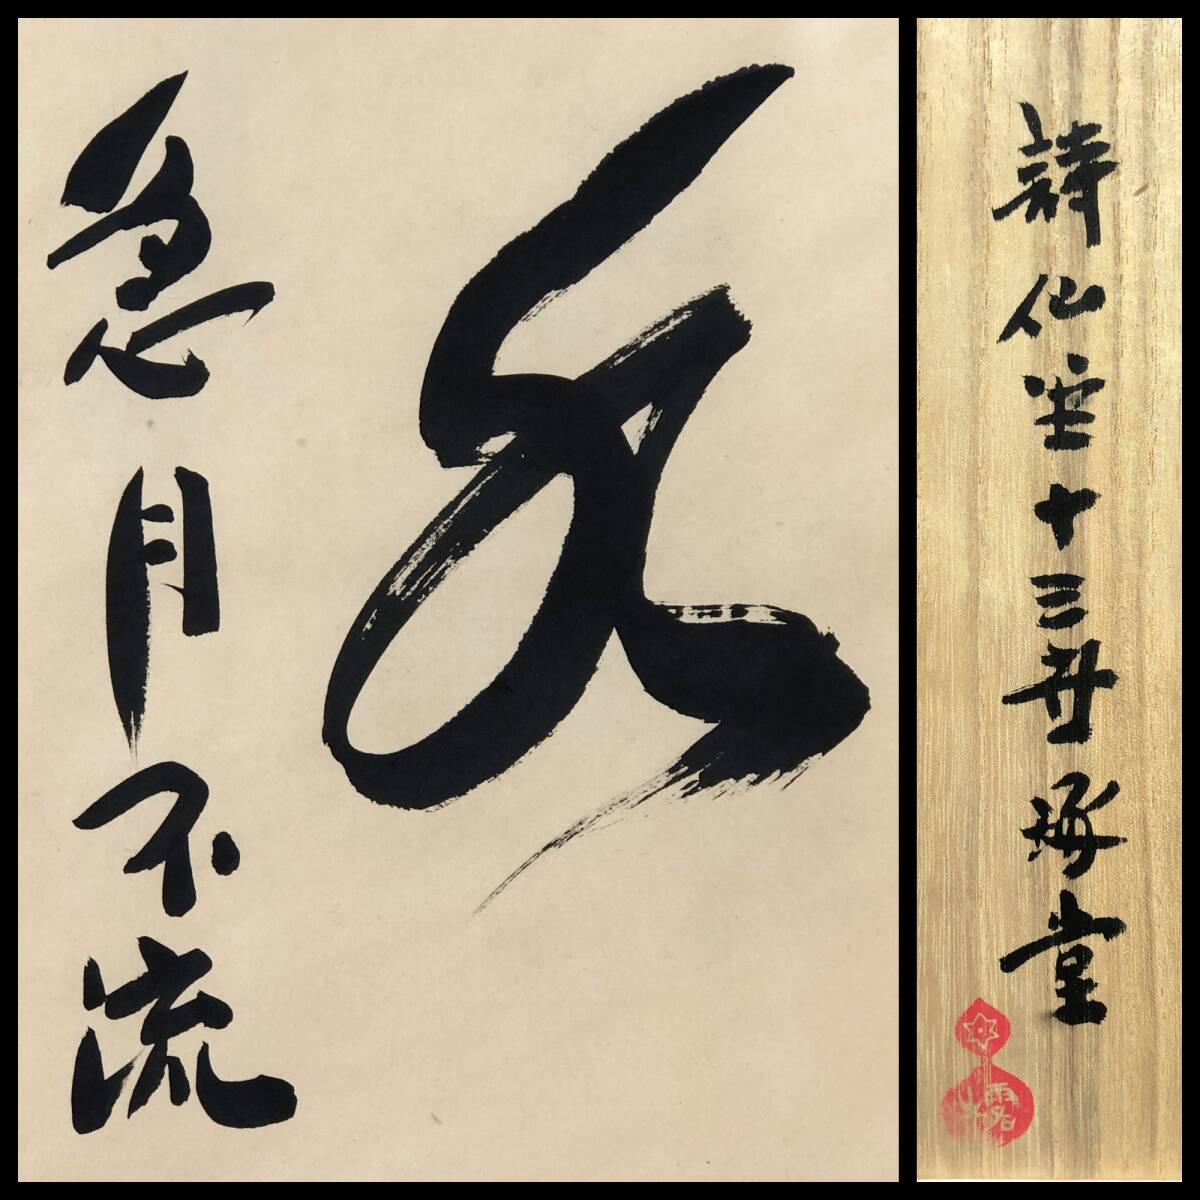 水
急月不流
詩仙堂十三世琢堂